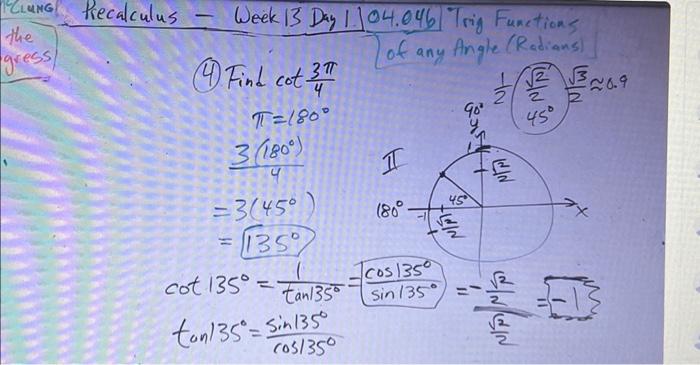 CLUNG Precalculus — Week 13 Day 1 04.04b Trig Functions
of any Angle (Radians)
the
gress
④ Find cot 3π/4
π=180°
3(180°)/4
=3(45°)
= 135°
1/2 √2/2 √3/2 ≈0.9
45°
90°
y
1
√2/2
II
180° -1 45° x
-√2/2
cot 135° = 1/tan135° = cos135°/sin135° = -√2/2 / √2/2 = -1
tan135° = sin135°/cos135°